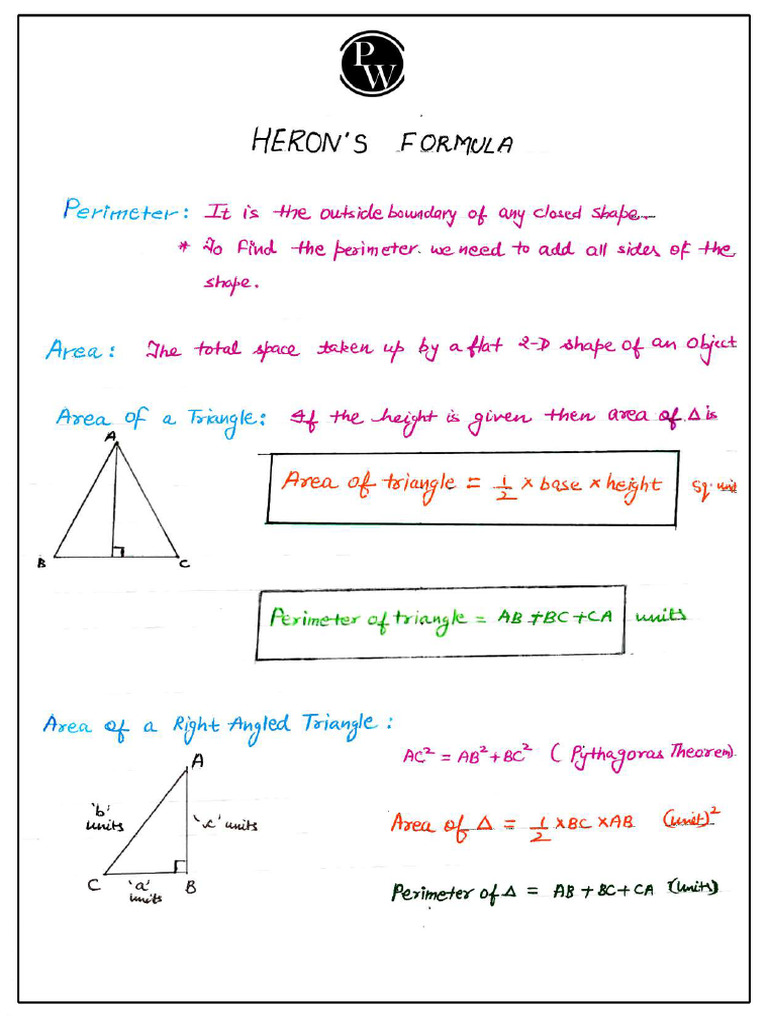 PW
HERON'S FORMULA
Perimeter: It is the outside boundary of any closed shape.
* To find the perimeter. we need to add all sides of the
shape.
Area: The total space taken up by a flat 2-D shape of an object
Area of a Triangle: If the height is given then area of Δ is
A
Area of triangle = 1/2 × base × height Sq. unit
B C
Perimeter of triangle = AB + BC + CA units
Area of a Right Angled Triangle:
AC² = AB² + BC² (Pythagoras Theorem).
A
'b' units
'c' units
Area of Δ = 1/2 × BC × AB (unit)²
C 'a' units B
Perimeter of Δ = AB + BC + CA (units)